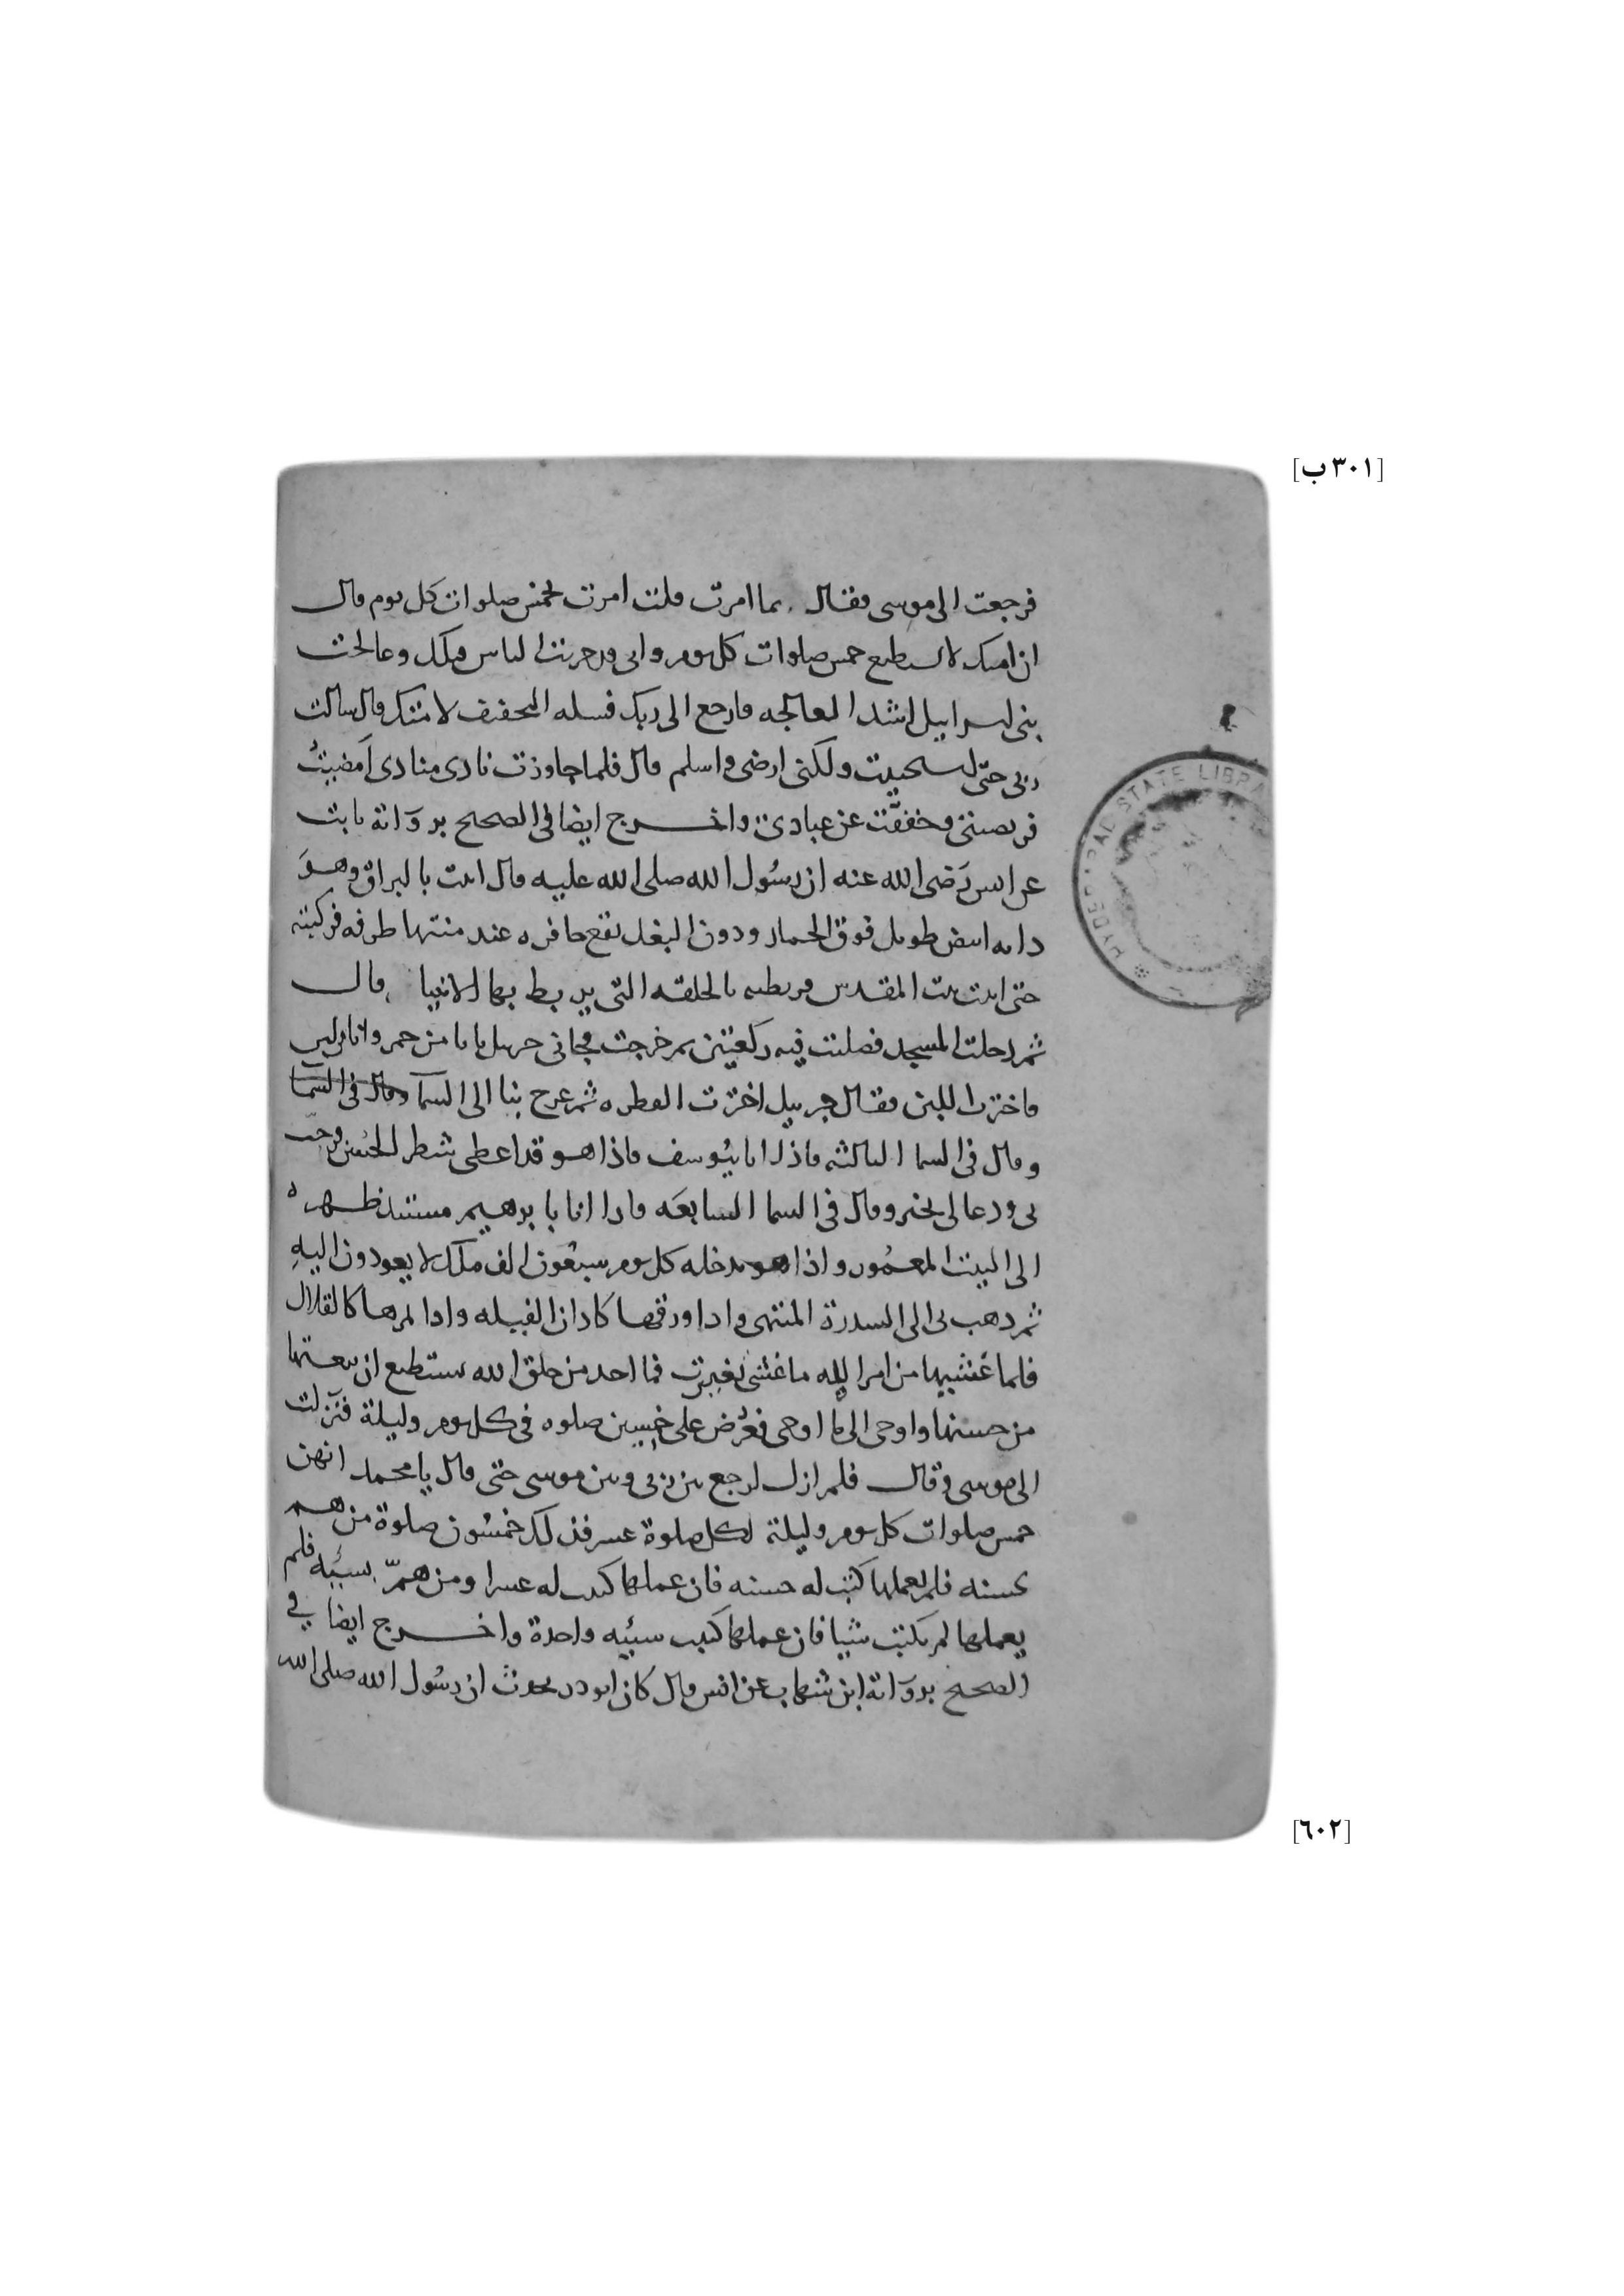 [٣٠١ ب]
فرجعت الى موسى فقال بما امرت قلت امرت بخمس صلوات كل يوم قال
ان امتك لا تستطيع خمس صلوات كل يوم واني قد جربت الناس قبلك وعالجت
بني اسرائيل اشد المعالجه فارجع الى ربك فسله التخفيف لامتك قال سالت
ربي حتى استحييت ولكني ارضى واسلم قال فلما جاوزت نادى منادى امضيتُ
فريضتي وخففّت عن عبادي واخرج ايضا في الصحيح برواية ثابت
عن انس رَضي الله عنه ان رسُول الله صلى الله عليه قال اتيت بالبراق وهوَ
دابه ابيض طويل فوق الحمار ودون البغل يقع حافره عند منتها طرفه فركبته
حتى اتيت بيت المقدس فربطته بالحلقه التي يربط بها الانبيا قال
ثم دخلت المسجد فصليت فيه ركعتين ثم خرجت فجاني جبريل بانا من خمر وانا من لبن
فاخترت اللبن فقال جبريل اخترت الفطره ثم عرج بنا الى السمآ وقال في السمآ
وقال في السما الثالثه فاذا انا بيُوسف فاذا هو قد اعطى شطر الحُسن فرحّب
بي ودعا لي بخير وقال في السما السابعَه فاذا انا بابرهيم مستند ظهره
الى البيت المعمُور واذا هو يدخله كل يوم سبعُون الف ملك لا يعودون اليهِ
ثم ذهب بي الى السدرة المنتهى واذا ورقها كاذان الفيله واذا ثمرها كالقلال
فلما غَشيها من امر الله ما غشى تغيرت فما احد من خلق الله يستطيع ان ينعتها
من حسنها واوحى الي ما اوحى ففُرض علي خمسين صلوه في كل يوم وليلة فنزلت
الى موسى وقال فلم ازل ارجع بين ربي وبين موسى حتى قال يا محمد انهن
خمس صلوات كل يوم وليلة لكل صلوة عشر فذلك خمسُون صلوة من هم
بحسنه فلم يعملها كتبت له حسنه فان عملها كتبت له عشرا ومن همّ بسيئه فلم
يعملها لم تكتب شيا فان عملها كتبت سيئه واحدة واخرج ايضا في
الصحيح برواية ابن شهاب عن انس قال كان ابو ذر يحدث ان رسُول الله صلى الله
[٦٠٢]
STATE LIBRA
HYDE